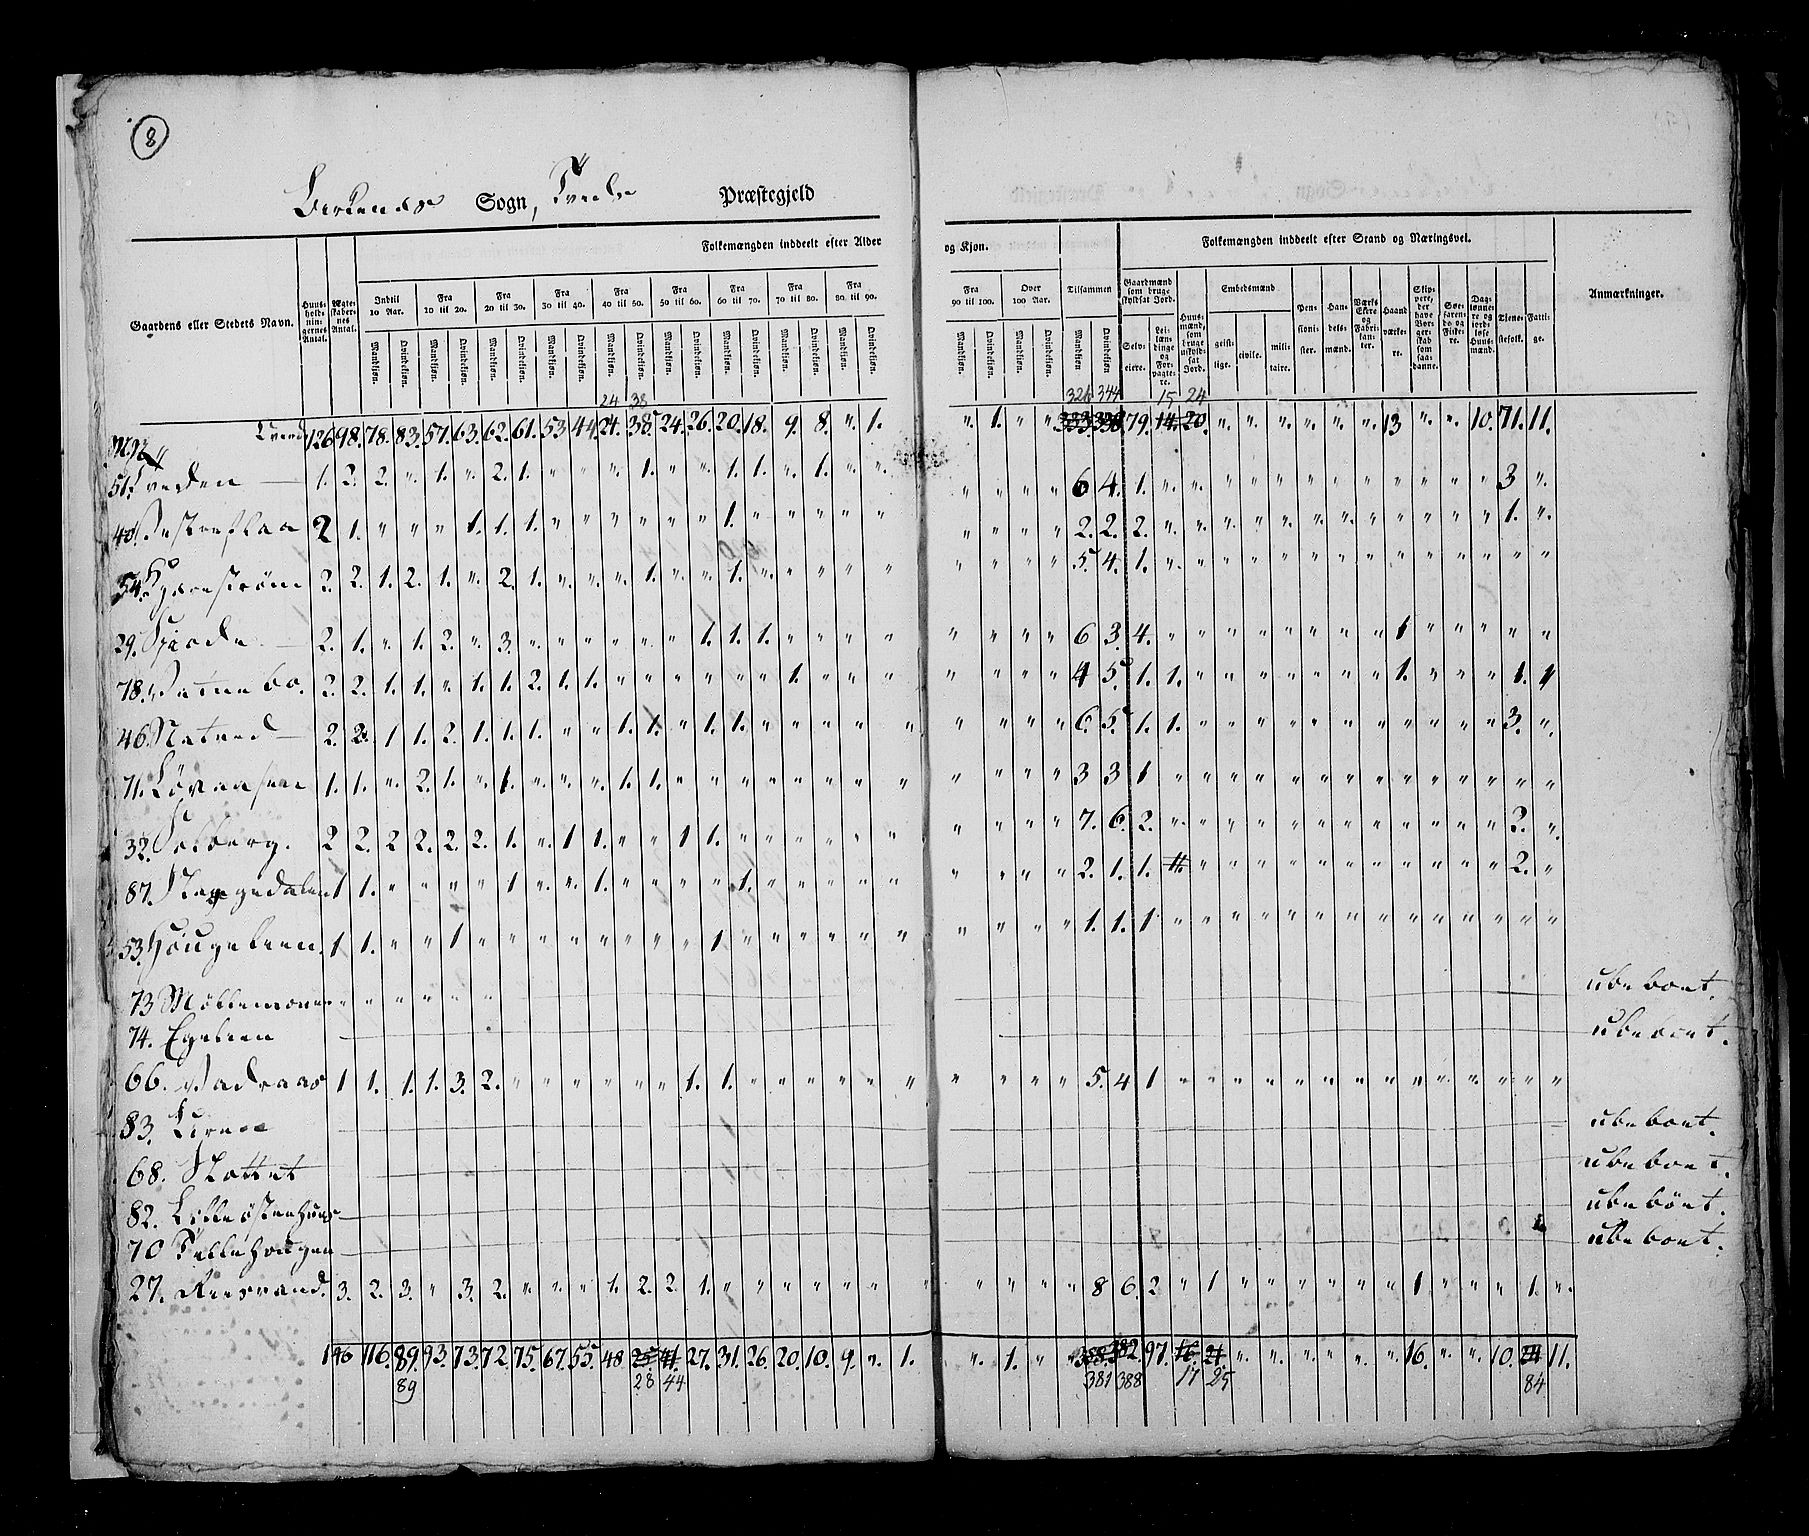 8
Birkenes Sogn, Tvede Præstegjeld
Gaardens eller Stedets Navn.
Huusholdningernes Antal.
Ægteskabernes Antal.
Folkemængden inddeelt efter Alder og Kjøn.
Indtil 10 Aar. Fra 10 til 20. Fra 20 til 30. Fra 30 til 40. Fra 40 til 50. Fra 50 til 60. Fra 60 til 70. Fra 70 til 80. Fra 80 til 90. Fra 90 til 100. Over 100 Aar. Tilsammen
Mandkjøn. Qvindekjøn.
Folkemængden inddeelt efter Stand og Næringsvei.
Gaardmænd som bruge skyldsat Jord.
Selveiere. Leilændinge og Forpagtere.
Huusmænd, som bruge uskyldsat Jord.
Embedsmænd geistlige. civile. militaire.
Pensionister. Handelsmænd. Værks Eiere og Fabrikanter. Haandværkere.
Skippere, der have Borgerskab som saadanne.
Søefarende og Fiskere. Daglønnere og jordløse Huusmænd. Tjenestefolk. Fattige.
Anmærkninger.
24 38 326 344 15 24
126 98. 78. 83. 57. 63. 62. 61. 53 44. 24. 38. 24. 26. 20. 18. 9. 8. " 1. " 1. " " 79. 14. 20. " " " " " " 13 " " 10. 71. 11.
51. Tveden 1. 2. 2. " 1. " 2. 1. " " " 1. " " 1. 1. " 1. " " " " " " 6 4. 1. " " " " " " " " " " " " 3 "
40. 2 1. " " " 1. 1. 1. " " " " " " 1. " " " " " " " " " 2. 2. 2. " " " " " " " " " " " " 1. "
54. Kjærestrøm 2. 2. 1. 2. 1. " 2. 1. " " " 1. " " 1. " " " " " 5. 4. 1. " " " " " " " " " " " " " "
29. 2. 1. " 1. 2. " 3. " " " " " " 1. 1. 1. " " " " " " " " 6 3. 4. " " " " " " " " 1 " " " " "
78. 2. 2. 1. 1. " 1. 1. 2. 1. 1. " " " " " " 1. " " " " " " " 4 5. 1. 1. " " " " " " " 1. " " " 1. 1
46. Natved 2. 2. 1 1. 2. 1. 1. 1. " " 1. 1. " 1. 1. " " " " " " " " " 6. 5. 1. 1. " " " " " " " " " " " 3. "
71. Løvaasen 1. 1. " 2. 1. " 1. " " " 1. 1. " " " " " " " " " " " " 3 3 1 " " " " " " " " " " " " " "
32. Solberg. 2 2. 2 2. 2. 2. 1. " 1 1. " " 1 1. " " " " " " " " " " 7. 6. 2. " " " " " " " " " " " " 2. "
87. 1 1. " " " " 1 " " 1. " " " " 1. " " " " " " " " " 2. 1. 1. " " " " " " " " " " " " 2. "
53. Høugelien. 1 1. " " 1 " " " " " " " " 1 " " " " " " " " " " 1. 1. 1 " " " " " " " " " " " " " "
73 ubeboet.
74. Egelien ubeboet.
66. 1 1. 1. 1. 3. 2. " " " " " " 1. 1. " " " " " " " " " " 5. 4 1 " " " " " " " " " " " " " "
83. ubeboet.
68. Slottet ubeboet.
82. ubeboet.
70 ubeboet.
27. 3. 2. 3. " 3. 2. " " " 1. 2. 2. 1. " " " " " " " " " " " 8 6. 2 " 1 " " " " " " 1 " " " 1. "
146 116. 89. 93. 73. 72. 75. 67. 55. 48. 25 41. 27. 31. 26. 20. 10. 9. " 1. " 1. " " 388. 382. 97. 16. 21. " " " " " " 16. " " 10. 11.
89 28 44 381 388 17 25 84